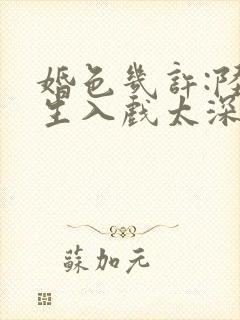 婚色幾許:陸
生入戲太深
蘇加元